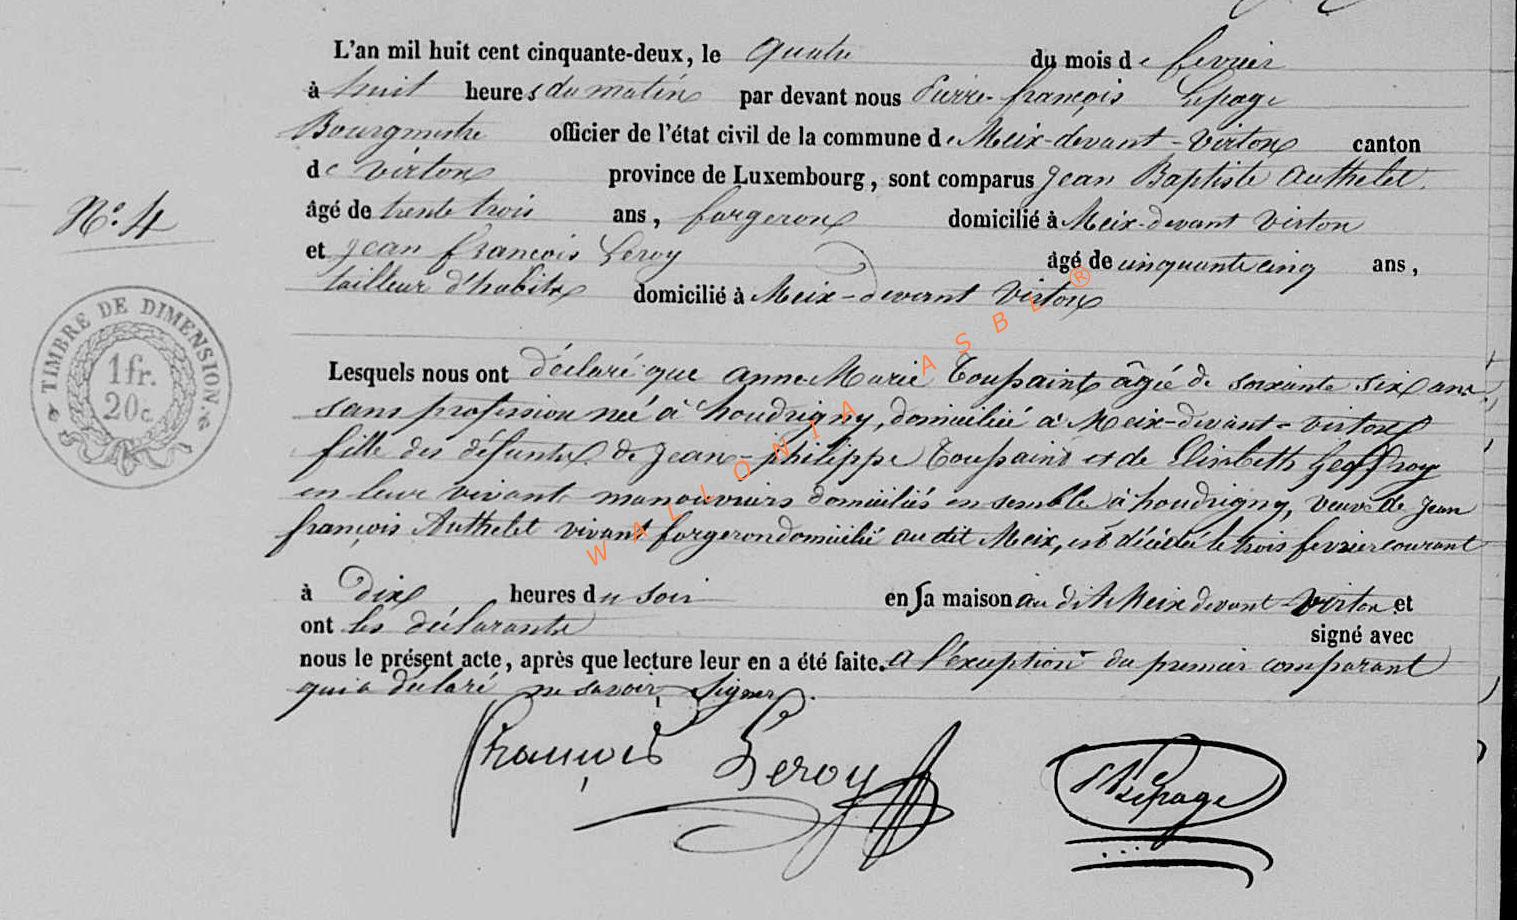 L'an mil huit cent cinquante-deux, le quatre du mois de fevrier
à huit heures du matin par devant nous Pierre-françois Lepage
Bourgmestre officier de l'état civil de la commune de Meix-devant-Virton canton
de Virton province de Luxembourg, sont comparus Jean Baptiste Authelet
N°. 4
âgé de trente trois ans, forgeron domicilié à Meix-devant Virton
et Jean françois Leroy âgé de cinquante cinq ans,
tailleur d'habits domicilié à Meix-devant Virton
TIMBRE DE DIMENSION
1 fr.
20c
Lesquels nous ont déclaré que anne-Marie Toupaint âgée de soixante six ans
sans profession née à houdrigny, domiciliée à Meix-devant-virton
fille des défunts de Jean-philippe Toupaint et de Elisabeth Geoffroy
en leur vivant manouvriers domiciliés ensemble à houdrigny, veuve de Jean
françois Authelet vivant forgeron domicilié au dit Meix, est décédée le trois fevrier courant
à Dix heures du soir en sa maison au dit Meix devant-Virton et
ont les déclarants signé avec
nous le présent acte, après que lecture leur en a été faite. a l'exception du premier comparant
qui a déclaré ne savoir signer.
françois Leroy
Lepage
WALLONIA ASBL ®